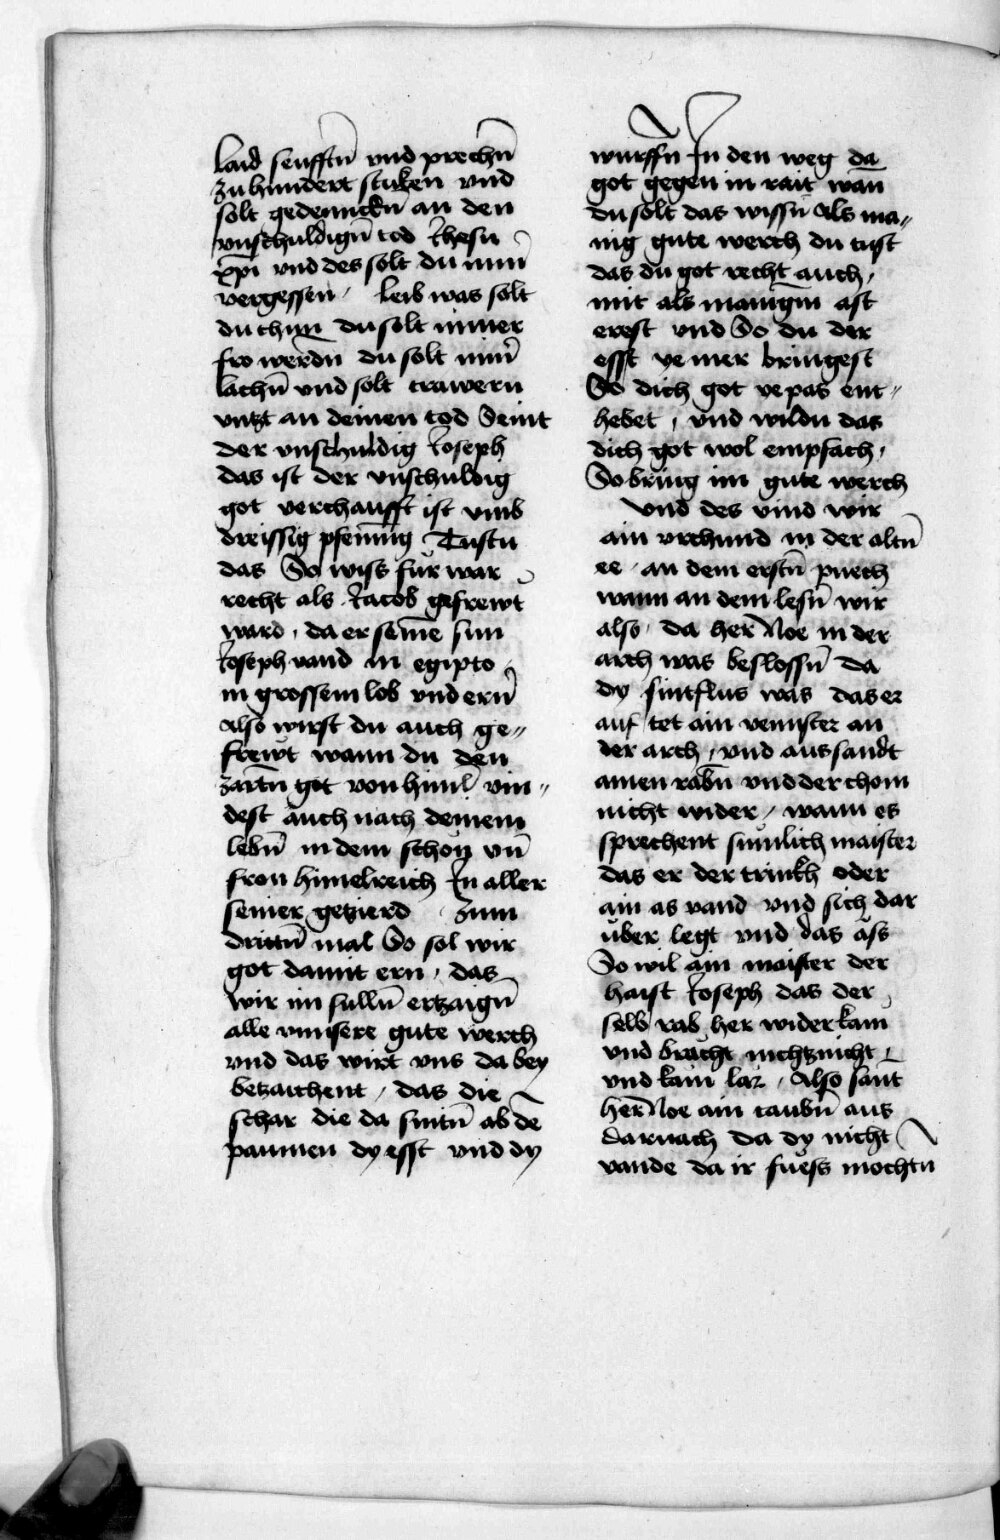 laid seufftn̄ vnd prechn̄
zu hundert stuken vnd
solt gedennckn̄ an den
vnschuldign̄ tod Jhesu
xp̄i vnd des solt du nim̄
vergessen / leib was solt
du thun du solt nimer
fro werdn du solt nim̄
lachn̄ vnd solt trawern
vntzt an deinen tod Seint
der vnschuldig Joseph
das ist der vnschuldig
got verchaufft ist vmb
dreissig pfennig Tustu
das So wiss fur war
recht als Jacob gefrewt
ward , da er seinē sun
Joseph vand in egipto
in grossem lob vnd ern̄
Also wirst du auch ge〃
frewt wann du den
zartn̄ got von himl̄ vin〃
dest auch nach deinem
lebn̄ in dem schon vn̄
fron himelreich In aller
seiner getzierd zum
drittn̄ mal So sol wir
got damit ern , das
wir im sulln̄ ertzaign̄
alle vnnsere gute werch
vnd das wirt vns da bey
betzaichent , das die
schar die da snitn̄ ab de
paumen dy esst vnd dy
wurffn̄ In den weg da
got gegen in rait wan̄
du solt das wissn̄ als ma〃
nig gute werch du tust
das du got recht auch ,
mit als manigm ast
erest vnd So du der
esst ye mer bringest
So dich got ye pas ent〃
hebet , vnd wildu das
dich got wol empfach ,
So bring im gute werch
vnd des vind wir
ain vrchund in der altn̄
ee . an dem erstn̄ puech
wann an dem lesn̄ wir
also . da her Noe in der
arch was beslossn̄ da
dy sintflus was das er
auf tet ain vennster an
der arch , vnd aussandt
ainen rabn̄ vnd der chom
nicht wider , wann es
sprechent sumlich maister
das er der trinkh oder
ain as vand vnd sich dar
uber legt vnd das ass
So wil ain maister der
haist Joseph das der
selb rab her wider kam
vnd bracht nichtznicht
vnd kam lar , Also sant
her Noe ain taubn̄ aus
darnach da dy nicht
vande da ir fuess mochtn